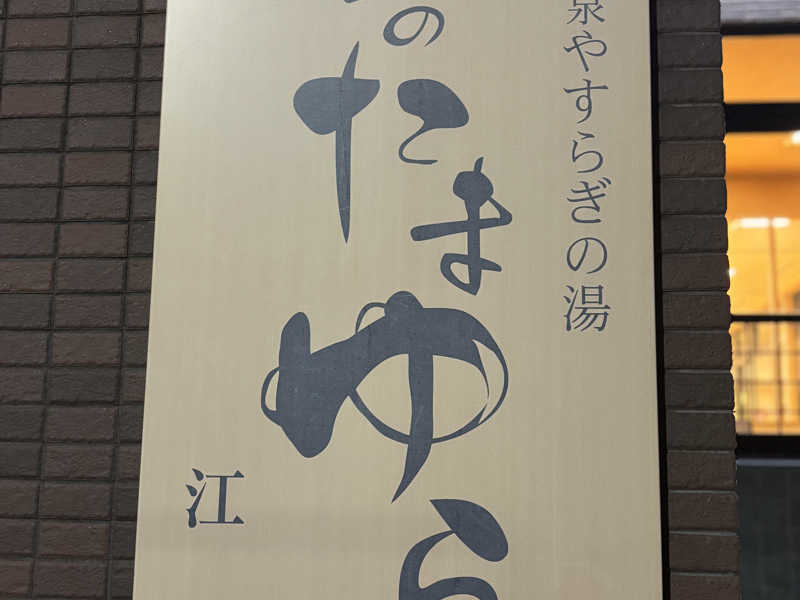 泉やすらぎの湯
のたまゆら
江